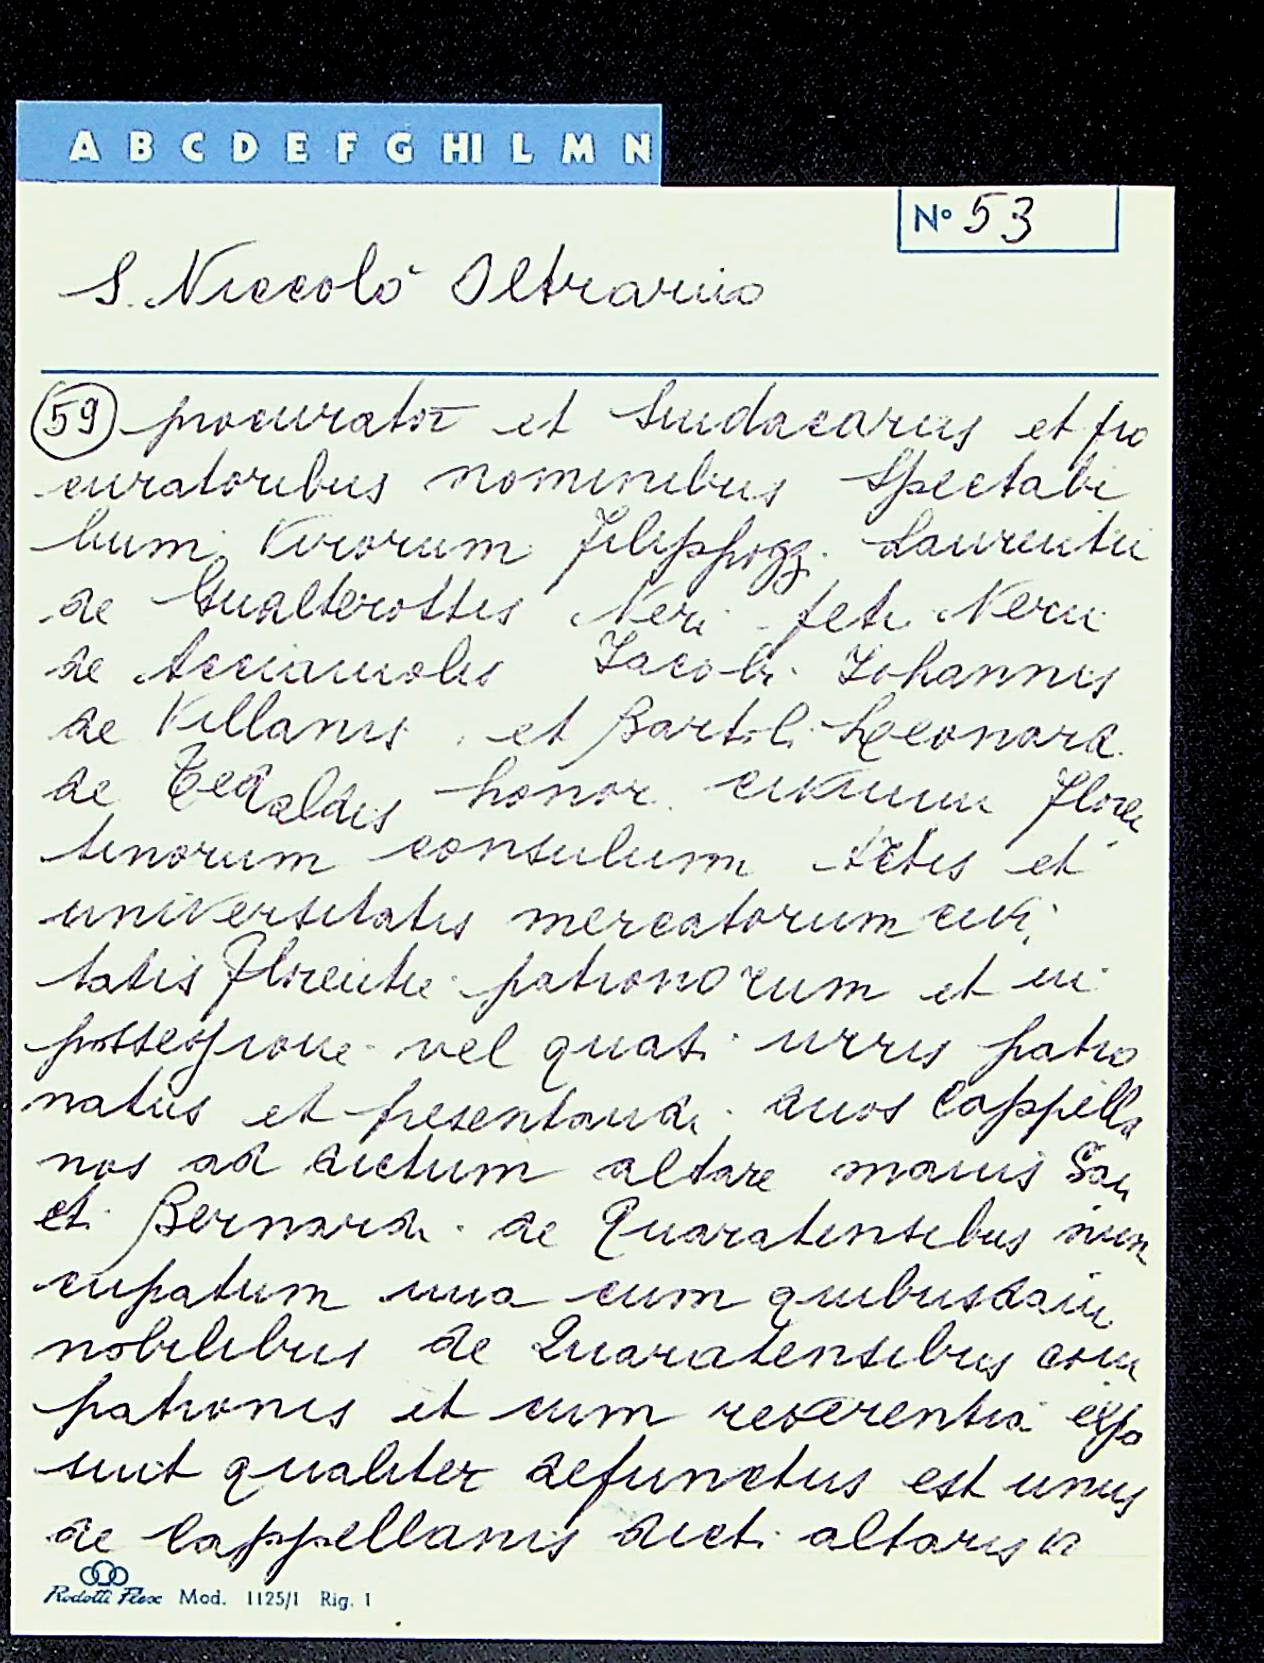 A B C D E F G HI L M N
N° 53
S. Niccolò Oltrarno
59 procurator et Sindacarius et pro
curatoribus nominibus Spectabi
lium Virorum Filippozz. Laurentii
de Gualterottis Neri feti Nerii
de Acciaiuolis Iacobi Iohannis
de Villanis, et Bartoli Leonard.
de Tedaldis honor. civium Floren
tinorum consulum Artis et
universitatis mercatorum civi
tatis Florentie patronorum et in
possessione vel quasi iuris patro
natus et presentandi duos Cappella
nos ad dictum altare maius San
cti Bernardi de Quaratensibus nun
cupatum una cum quibusdam
nobilibus de Quaratensibus com
patronis et cum reverentia expo
sunt qualiter defunctus est unus
de Cappellanis dicti altaris
Rodotti Flex Mod. 1125/1 Rig. 1